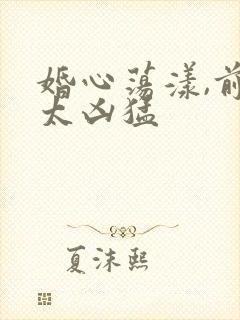 婚心荡漾,前
太凶猛
夏沫熙